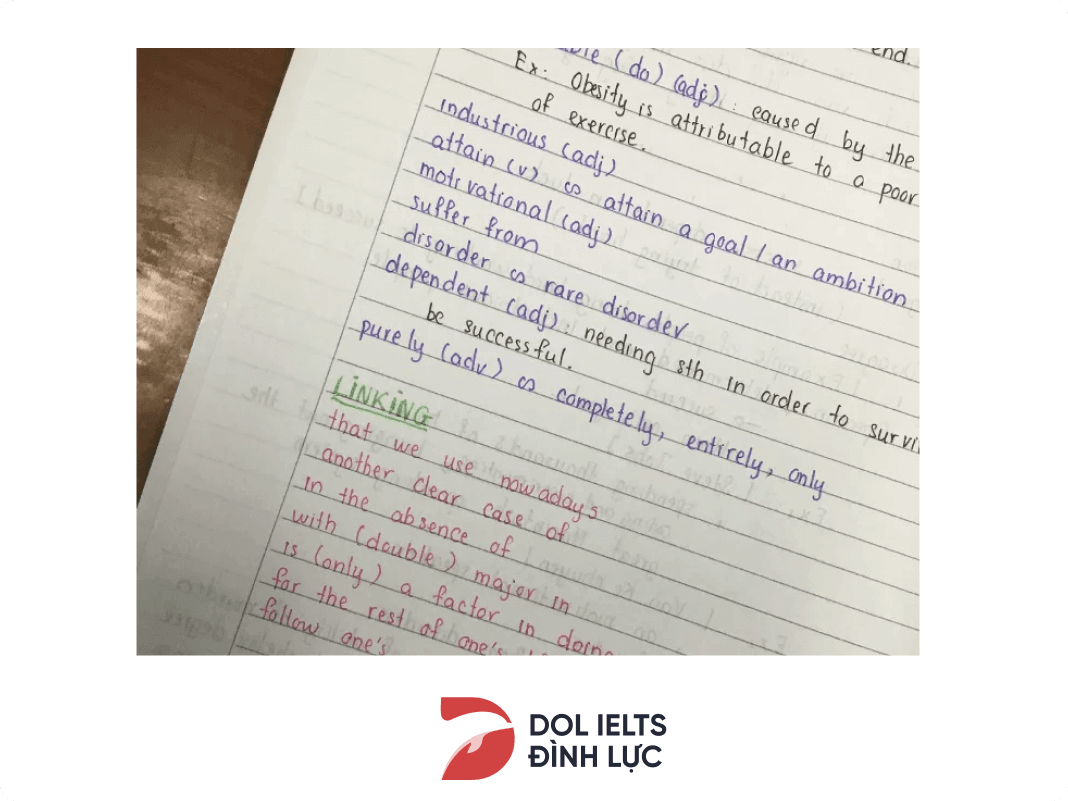 end.
(do) (adj): caused by the
Ex: Obesity is attributable to a poor
of exercise.
industrious (adj)
attain (v) ⇔ attain a goal / an ambition
motivational (adj)
suffer from
disorder ⇔ rare disorder
dependent (adj): needing sth in order to survi
be successful.
purely (adv) ⇔ completely, entirely, only
LINKING
that we use nowadays
another clear case of
in the absence of
with (double) major in
is (only) a factor in doing
for the rest of one's
follow one's
DOL IELTS
ĐÌNH LỰC